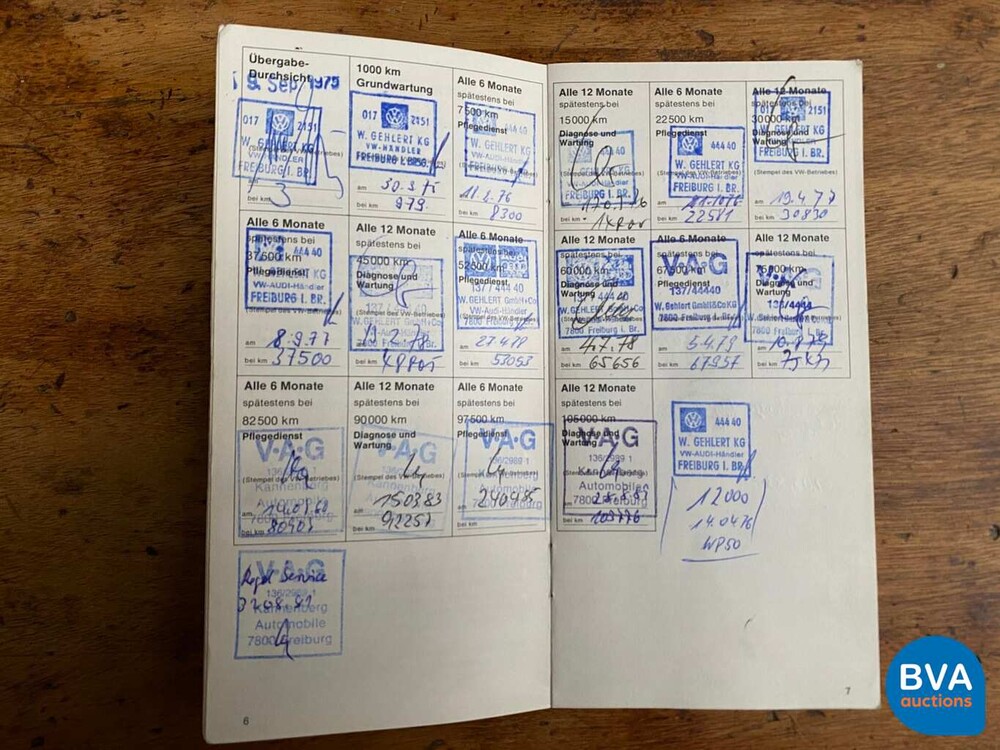 Übergabe-
Durchsicht
9. Sep. 1975
017 2151
W. GEHLERT KG
VW-HÄNDLER
FREIBURG I. BR.
bei km 3
1000 km
Grundwartung
017 2151
W. GEHLERT KG
VW-HÄNDLER
FREIBURG I. BR.
am 30.9.75
bei km 979
Alle 6 Monate
spätestens bei
7500 km
Pflegedienst
444 40
W. GEHLERT KG
VW-AUDI-Händler
FREIBURG I. BR.
am 11.2.76
bei km 8300
Alle 12 Monate
spätestens bei
15000 km
Diagnose und
Wartung
444 40
(Stempel des VW-Betriebes)
FREIBURG I. BR.
am
bei km
Alle 6 Monate
spätestens bei
22500 km
Pflegedienst
444 40
W. GEHLERT KG
VW-AUDI-Händler
FREIBURG I. BR.
am
bei km 22581
Alle 12 Monate
spätestens bei
30000 km
Diagnose und
Wartung
017 2151
W. GEHLERT KG
FREIBURG I. BR.
(Stempel des VW-Betriebes)
am 19.4.77
bei km 30830
Alle 6 Monate
spätestens bei
37500 km
Pflegedienst
444 40
W. GEHLERT KG
VW-AUDI-Händler
FREIBURG I. BR.
am 8.9.77
bei km 37500
Alle 12 Monate
spätestens bei
45000 km
Diagnose und
Wartung
137 / 444 40
W. GEHLERT GmbH+Co
VW-Audi-Händler
7800 Freiburg i. Br.
bei km
Alle 6 Monate
spätestens bei
52500 km
Pflegedienst
137 / 444 40
W. GEHLERT GmbH+Co
VW-Audi-Händler
7800 Freiburg i. Br.
am 27.4.78
bei km 53053
Alle 12 Monate
spätestens bei
60000 km
Diagnose und
Wartung
444 40
W. GEHLERT
7800 Freiburg i. Br.
am 4.7.78
bei km 65656
Alle 6 Monate
spätestens bei
67500 km
Pflegedienst
V·A·G
137/44440
W. Gehlert GmbH&CoKG
7800 Freiburg i. Br.
am 5.4.79
bei km 67957
Alle 12 Monate
spätestens bei
75000 km
Diagnose und
Wartung
V·A·G
W. Gehlert GmbH&CoKG
7800 Freiburg i. Br.
am
bei km
Alle 6 Monate
spätestens bei
82500 km
Pflegedienst
V·A·G
136/2989 1
(Stempel des VW-Betriebes)
Kannenberg
Automobile
7800 Freiburg
am
bei km
Alle 12 Monate
spätestens bei
90000 km
Diagnose und
Wartung
V·A·G
(Stempel des VW-Betriebes)
am 15.03.83
bei km 92251
Alle 6 Monate
spätestens bei
97500 km
Pflegedienst
V·A·G
136/2989 1
(Stempel des VW-Betriebes)
Kannenberg
Automobile
7800 Freiburg
am 24.04.85
bei km
Alle 12 Monate
spätestens bei
105000 km
Diagnose und
Wartung
V·A·G
136/2989 1
Kannenberg
Automobile
7800 Freiburg
am
bei km 103776
444 40
W. GEHLERT KG
VW-AUDI-Händler
FREIBURG I. BR.
12000
14.04.76
WP50
V·A·G
Service
136/2989 1
Kannenberg
Automobile
7800 Freiburg
6
7
BVA
auctions